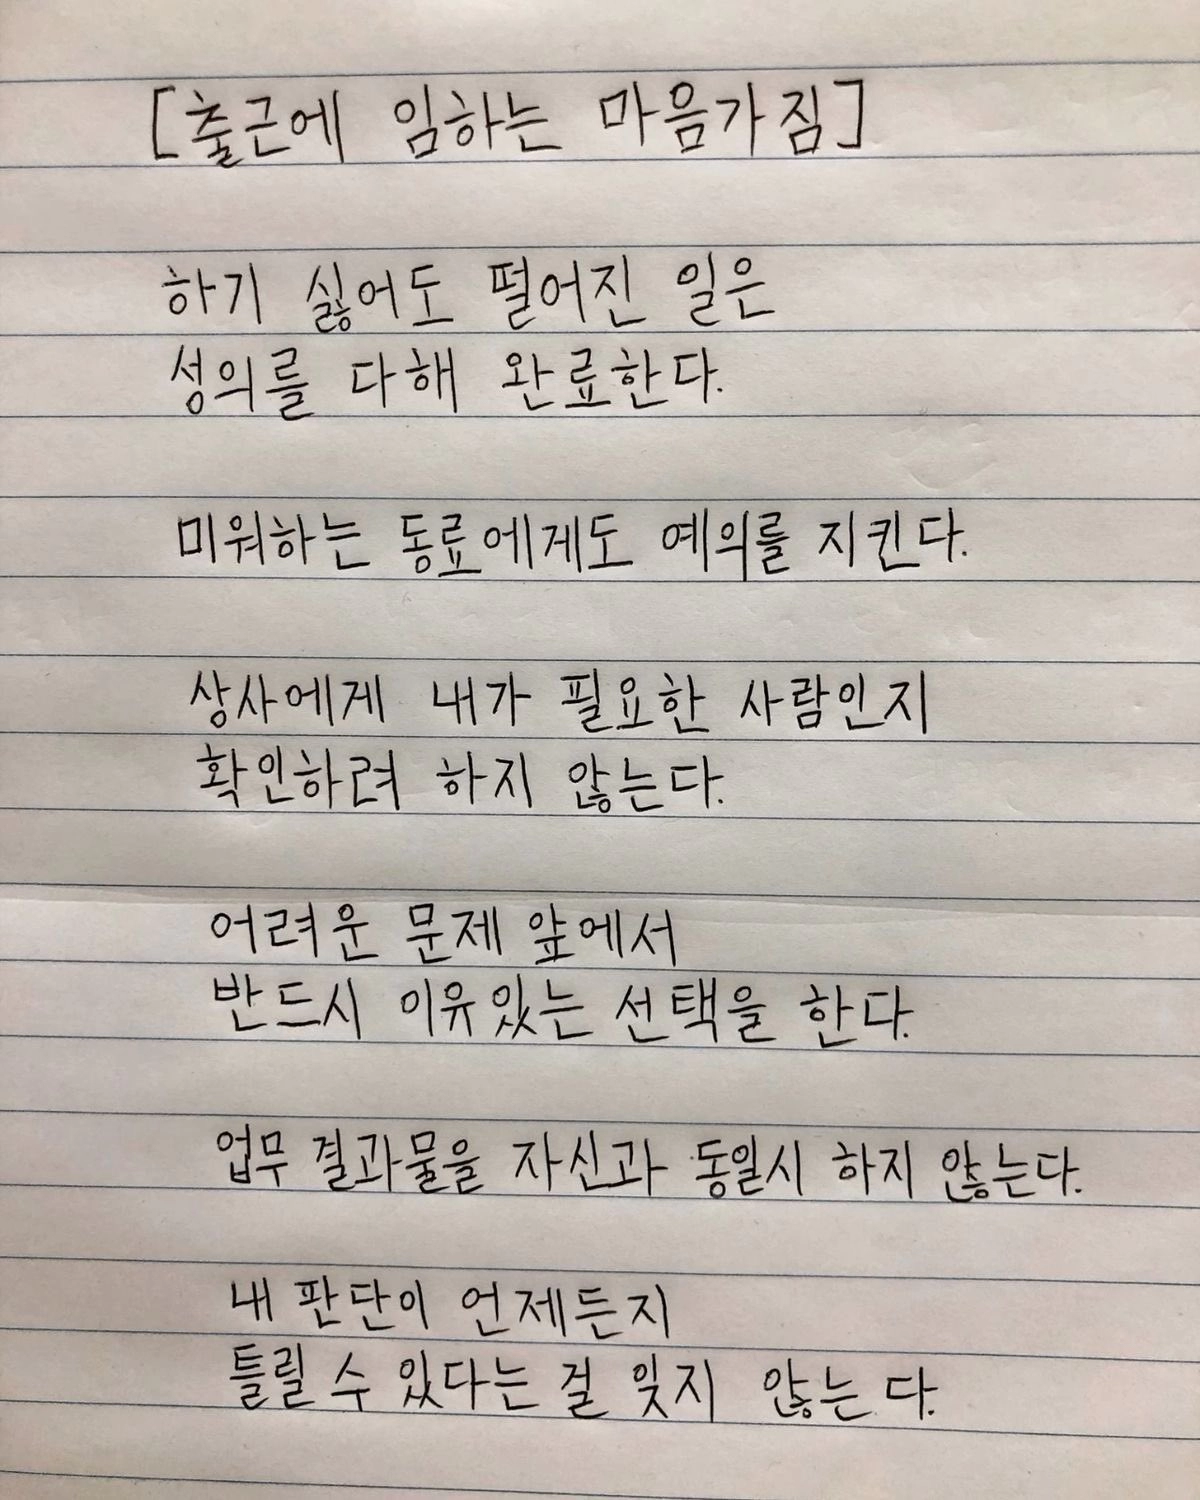 [출근에 임하는 마음가짐]
하기 싫어도 떨어진 일은
성의를 다해 완료한다.
미워하는 동료에게도 예의를 지킨다.
상사에게 내가 필요한 사람인지
확인하려 하지 않는다.
어려운 문제 앞에서
반드시 이유있는 선택을 한다.
업무 결과물을 자신과 동일시 하지 않는다.
내 판단이 언제든지
틀릴 수 있다는 걸 잊지 않는다.